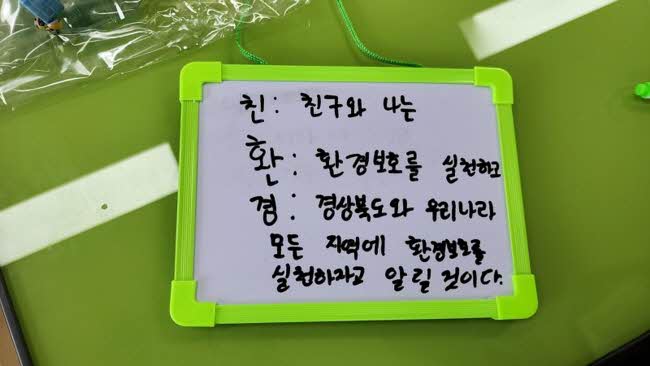 친: 친구와 나는
환: 환경보호를 실천하고
경: 경상북도와 우리나라
모든 지역에 환경보호를
실천하자고 알릴 것이다.